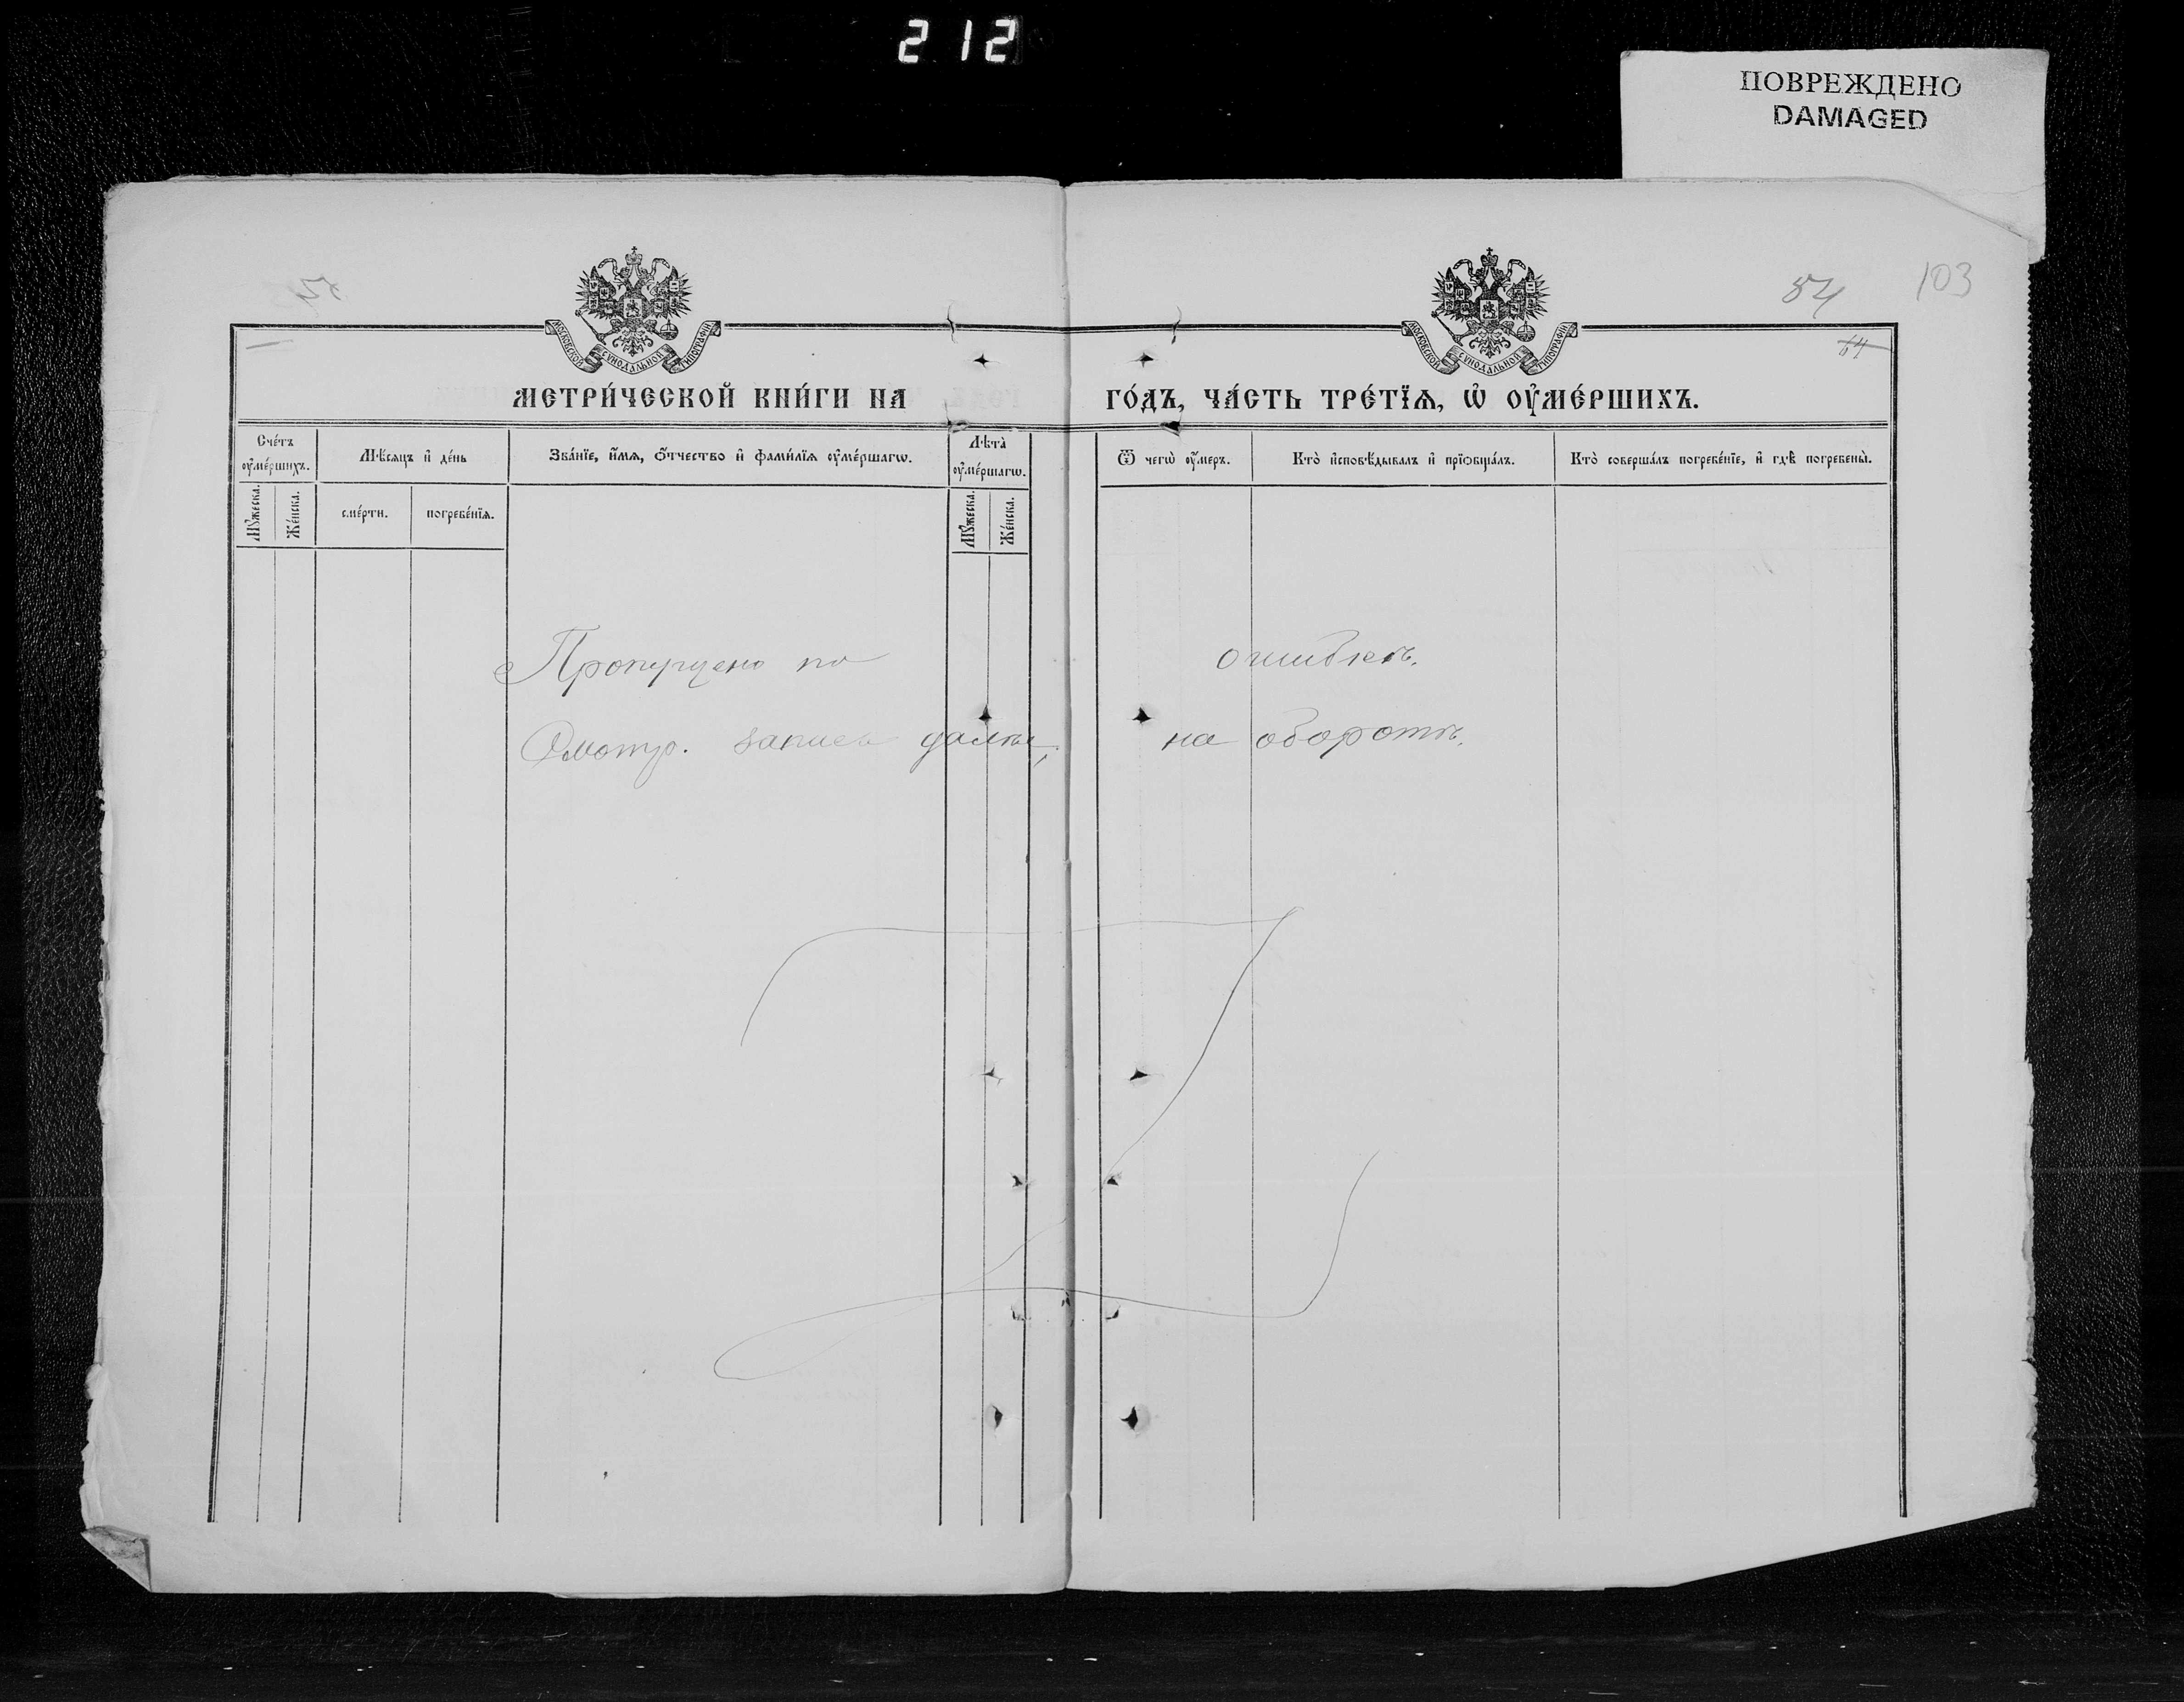 212
ПОВРЕЖДЕНО
DAMAGED
54 103
64
МОСКОВСКОЙ СѴНОДАЛЬНОЙ ТИПОГРАФІИ
МОСКОВСКОЙ СѴНОДАЛЬНОЙ ТИПОГРАФІИ
МЕТРИ́ЧЕСКОЙ КНИ́ГИ НА ГО́ДЪ, ЧА́СТЬ ТРЕ́ТЇѦ, Ѽ ОУ҆МЕ́РШИХЪ.
Сче́тъ оу҆ме́ршихъ.
Мѣ́сяцъ и҆ де́нь
Зва́нїе, и҆́мѧ, ѻ҆́тчество и҆ фами́лїѧ оу҆ме́ршагѡ.
Лѣта̀ оу҆ме́ршагѡ.
Ѿ чегѡ̀ оу҆́меръ.
Кто̀ и҆сповѣ́дывалъ и҆ прїѻбща́лъ.
Кто̀ соверша́лъ погребе́нїе, и҆ гдѣ̀ погребены̀.
Мꙋ́жеска.
Же́нска.
сме́рти.
погребе́нїѧ.
Мꙋ́жеска.
Же́нска.
Пропущено по ошибкѣ.
Смотр. запись далѣе, на оборотѣ.